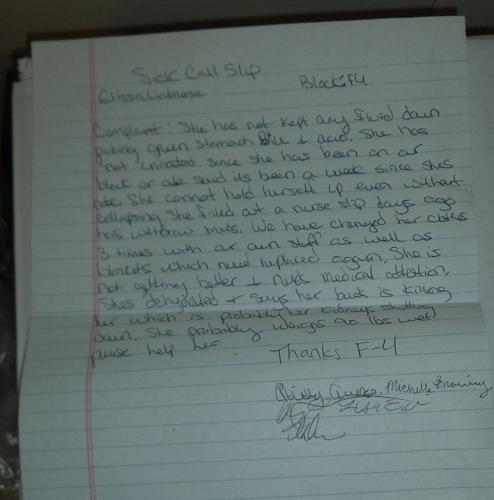 Sick Call Slip
Elissa Lindhorse Block: F4
Complaint: She has not kept any fluid down
puking green stomach Bile & acid. She has
not urinated since she has been on our
block or ate said its been a week since shes
ate. She cannot hold herself up even without
collapsing she filled out a nurse slip days ago
has withdraw muts. We have changed her clothes
3 times with our own stuff as well as
blankets which need replaced again. She is
not getting better & needs medical attention.
Shes dehydrated & says her back is killing
her which is probably her kidneys shutting
down. She probably weighs 90 lbs wet
please help her.
Thanks F-4
Michelle